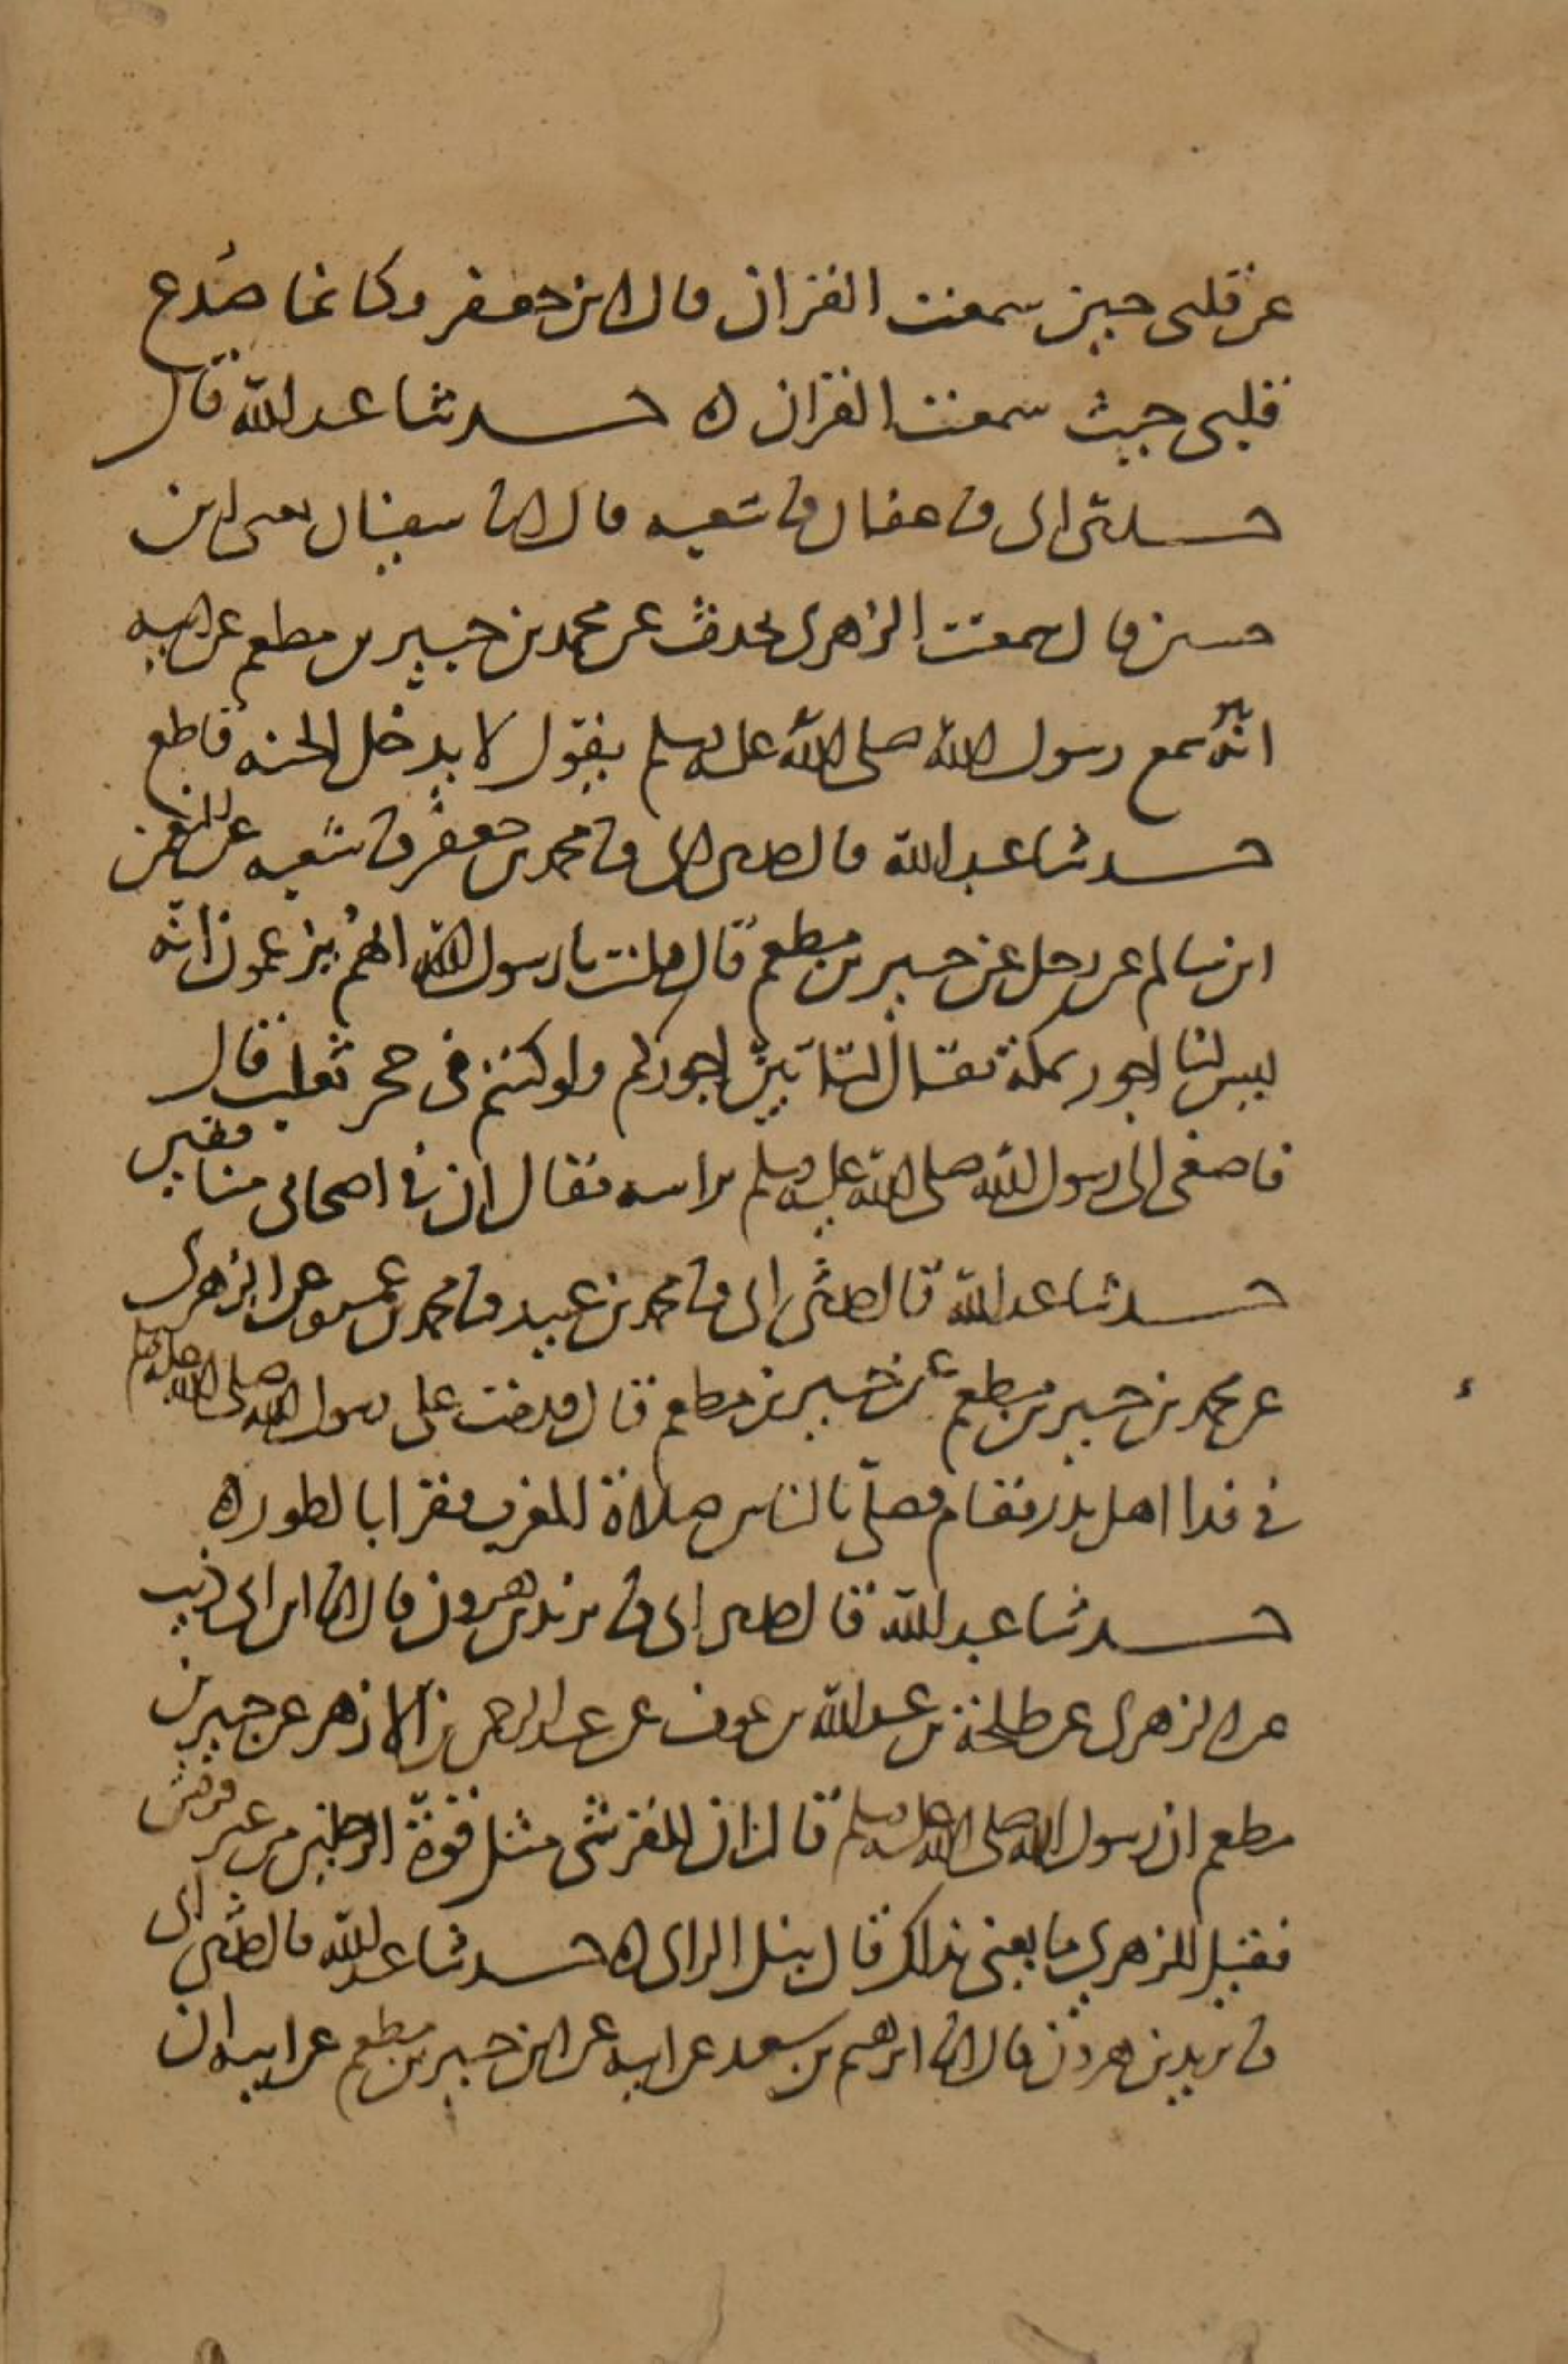 عن قلبى حين سمعت القران قال ابن جعفر وكانما صُدع
قلبى حيث سمعت القران ه حدثنا عبد الله قال
حدثنى ابى نا عفان نا شعبه قال انا سفيان يعنى ابن
حسين قال سمعت الزهرى يحدث عن محمد بن جبير بن مطعم عن ابيه
انه سمع رسول الله صلى الله عليه وسلم يقول لا يدخل الجنه قاطع
حدثنا عبد الله قال حدثنى ابى نا محمد بن جعفر نا شعبه عن النعمن
ابن سالم عن رجل عن جبير بن مطعم قال قلت يا رسول الله انهم يزعمون انه
ليس لنا اجور بمكة فقال لتاتينّكم اجوركم ولو كنتم فى جحر ثعلب قال
فاصغى الى رسول الله صلى الله عليه وسلم براسه فقال ان فى اصحابى منافقين
حدثنا عبد الله قال حدثنى ابى نا محمد بن عبيد نا محمد بن عمرو عن الزهرى
عن محمد بن جبير بن مطعم عن جبير بن مطعم قال قدمت على رسول الله صلى الله عليه وسلم
فى فدا اهل بدر فقام فصلى بالناس صلاة المغرب فقرا بالطور ه
حدثنا عبد الله قال حدثنى ابى نا يزيد بن هرون قال انا ابن ابى ذيب
عن الزهرى عن طلحة بن عبد الله بن عوف عن عبد الرحمن بن الازهر عن جبير بن
مطعم ان رسول الله صلى الله عليه وسلم قال ان للقرشى مثل قوة الرجلين من غير قريش
فقيل للزهرى ما يعنى بذاك قال نبل الراى ه حدثنا عبد الله قال حدثنى ابى
نا يزيد بن هرون قال انا ابرهيم بن سعد عن ابيه عن ابن جبير بن مطعم عن ابيه ان